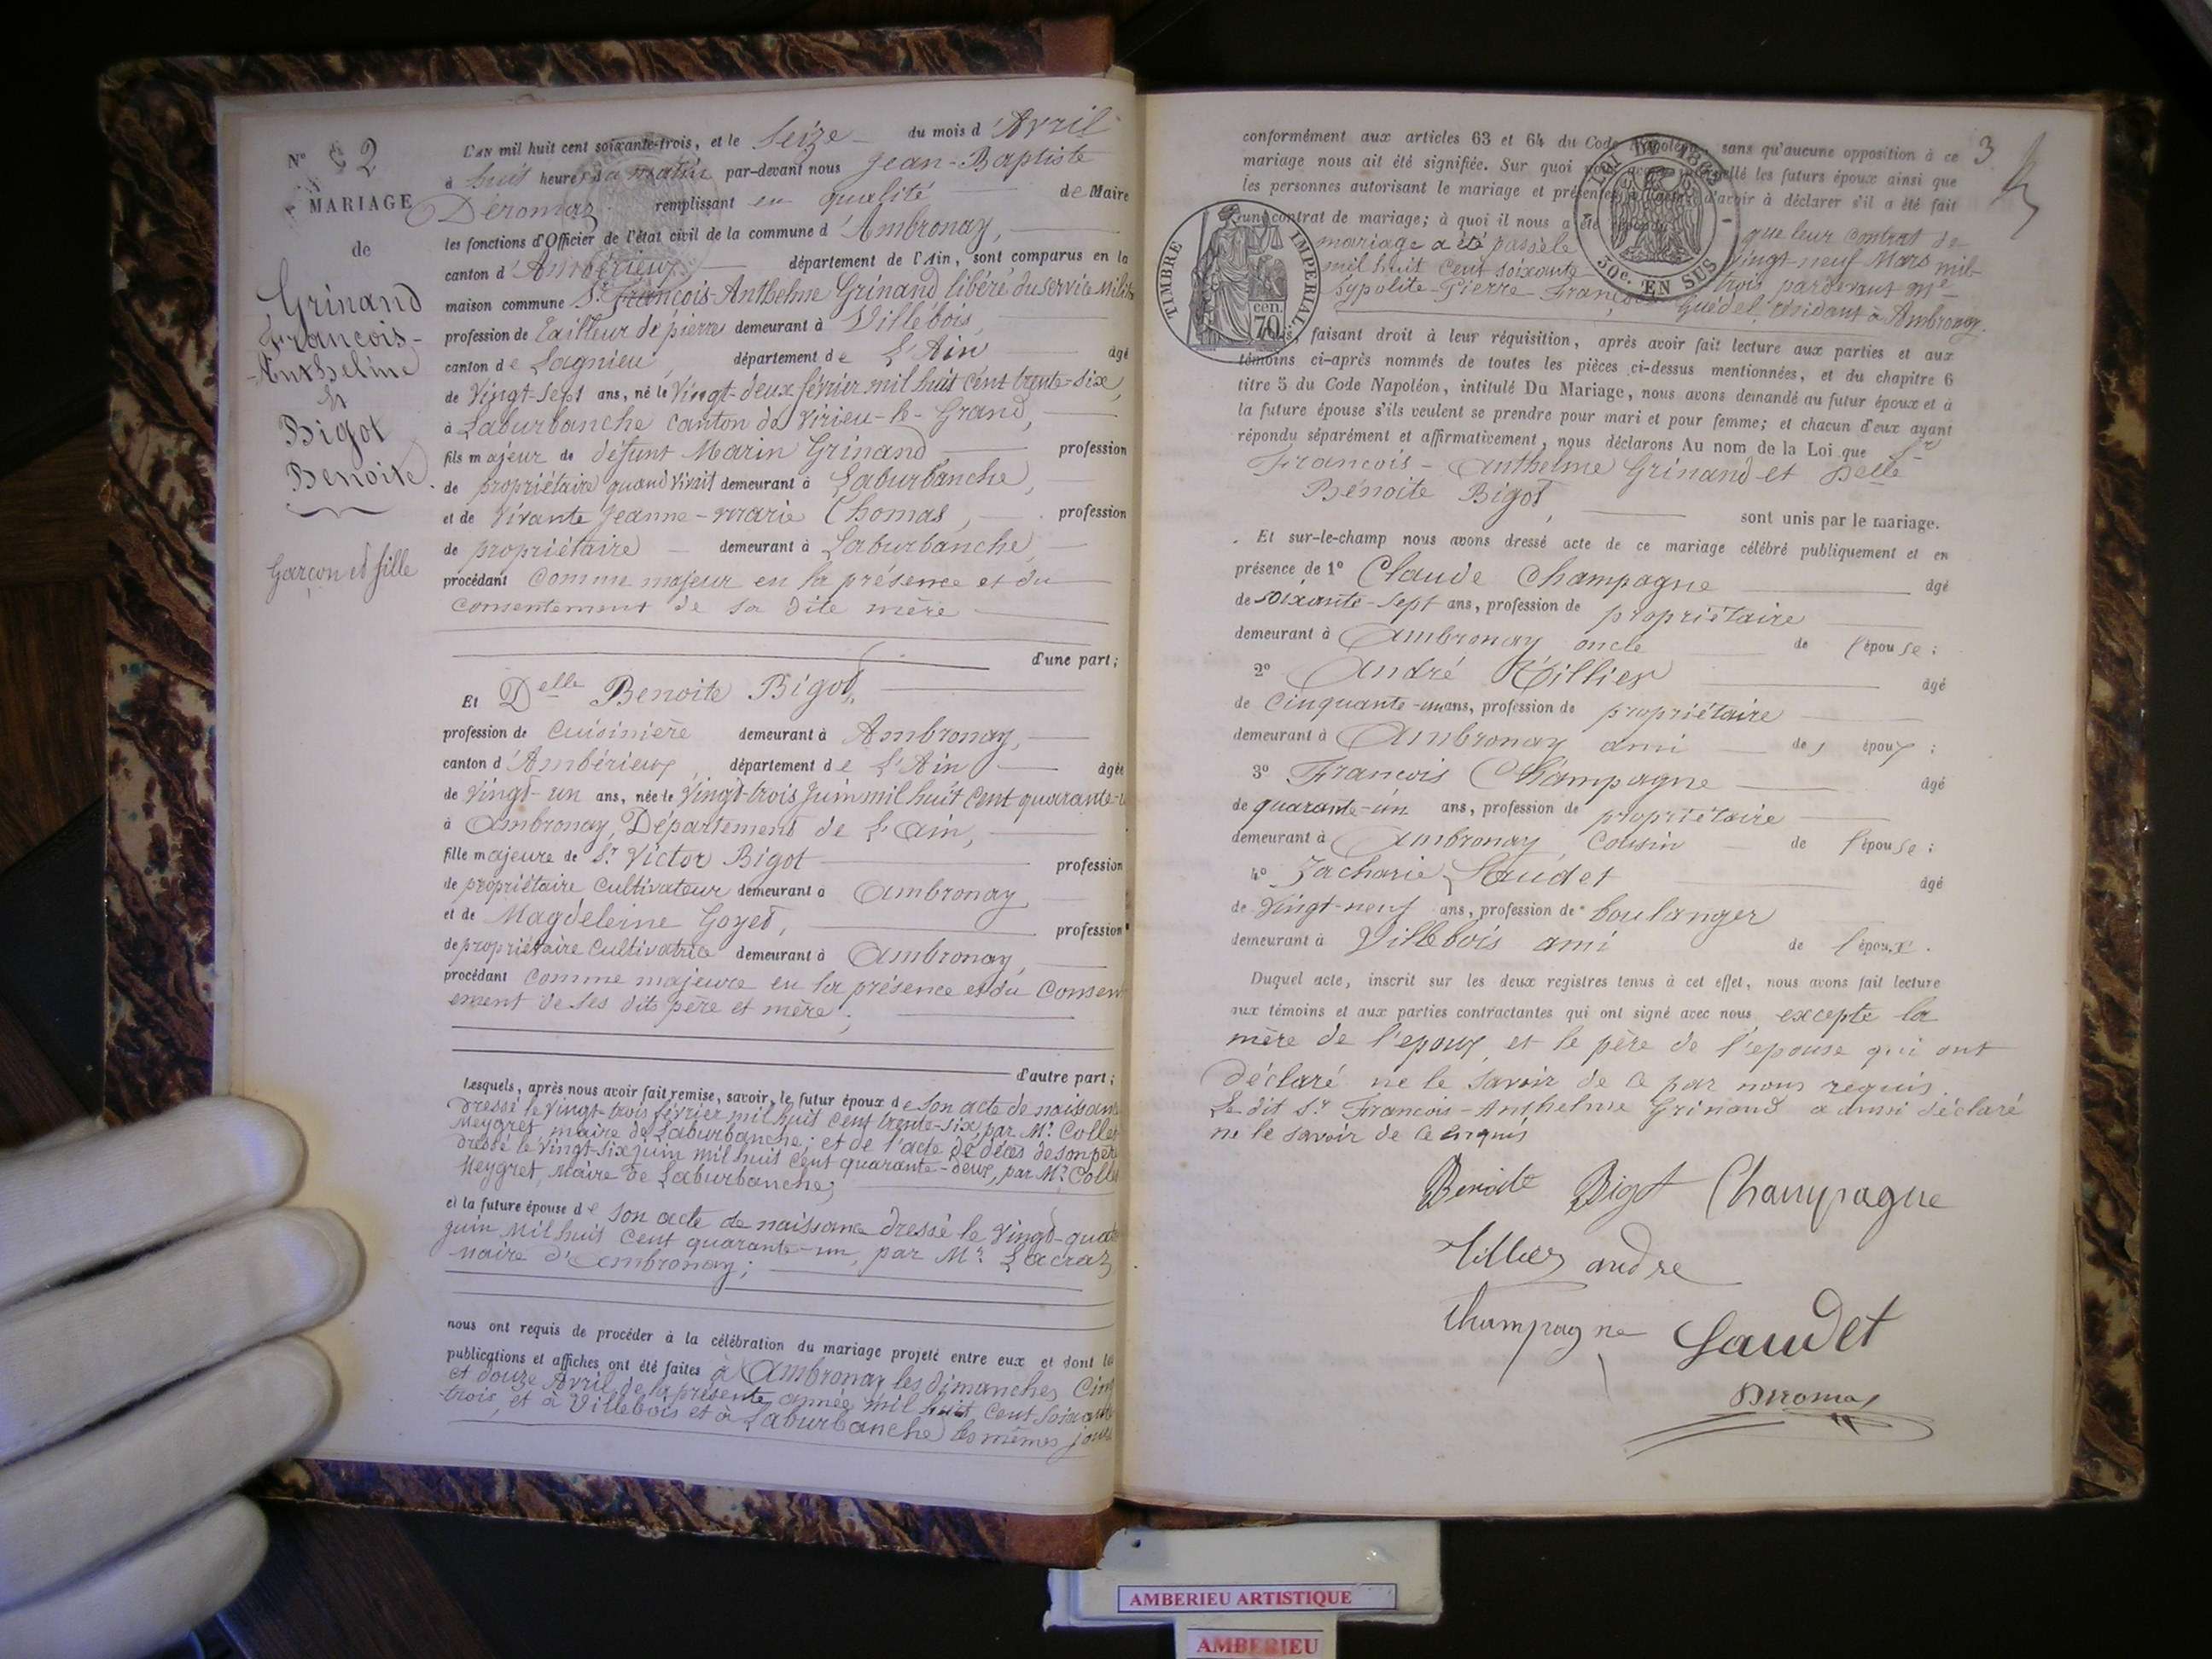 N° 2
MARIAGE
de
Grinand
François-
-Anthelme
et
Bigot
Benoite.
Garçon et fille
L'AN mil huit cent soixante-trois, et le Seize du mois d'Avril
à huit heures du matin par-devant nous Jean-Baptiste
Déromas remplissant en qualité de Maire
les fonctions d'Officier de l'état civil de la commune d'Ambronay,
canton d'Ambérieux département de l'Ain, sont comparus en la
maison commune Sr François-Anthelme Grinand libéré du service milit
profession de Tailleur de pierres demeurant à Villebois,
canton de Lagnieu, département de L'Ain âgé
de Vingt-sept ans, né le Vingt-deux février mil huit cent trente-six,
à Laburbanche canton de Virieu-le-Grand,
fils majeur de défunt Marin Grinand profession
de propriétaire quand vivait demeurant à Laburbanche,
et de Vivante Jeanne-Marie Thomas, profession
de propriétaire demeurant à Laburbanche,
procédant comme majeur en la présence et du
consentement de sa dite mère
d'une part;
Et Delle Benoite Bigot,
profession de Cuisinière demeurant à Ambronay,
canton d'Ambérieux, département de L'Ain âgée
de Vingt-un ans, née le Vingt-trois juin mil huit cent quarante-u
à Ambronay, Département de L'Ain,
fille majeure de Sr Victor Bigot profession
de propriétaire cultivateur demeurant à Ambronay
et de Magdeleine Goyet, profession
de propriétaire cultivatrice demeurant à Ambronay,
procédant comme majeure en la présence et du consen
ement de ses dits père et mère;
d'autre part;
Lesquels, après nous avoir fait remise, savoir, le futur époux de son acte de naissan
dressé le Vingt-trois février mil huit cent trente-six, par Mr. Collet
Meygret, maire de Laburbanche; et de l'acte de décès de son père
dressé le Vingt-six juin mil huit cent quarante-deux, par Mr. Colle
Meygret, Maire de Laburbanche;
et la future épouse de son acte de naissance dressé le Vingt-quat
juin mil huit cent quarante-un, par Mr. Lacraz
maire d'Ambronay;
nous ont requis de procéder à la célébration du mariage projeté entre eux et dont les
publications et affiches ont été faites à Ambronay les dimanches Cinq
et douze Avril de la présente année mil huit cent soixante
trois, et à Villebois et à Laburbanche les mêmes jours
3
conformément aux articles 63 et 64 du Code Napoléon, sans qu'aucune opposition à ce
mariage nous ait été signifiée. Sur quoi nous avons interpellé les futurs époux ainsi que
les personnes autorisant le mariage et présentes d'avoir à déclarer s'il a été fait
un contrat de mariage; à quoi il nous a été répondu que leur contrat de
mariage a été passé le Vingt-neuf Mars mil
mil huit cent soixante-trois, pardevant Me
hypolite-Pierre-François Guédel, résidant à Ambronay.
TIMBRE IMPERIAL
70 cen.
LOI DE 1862
30c. EN SUS
faisant droit à leur réquisition, après avoir fait lecture aux parties et aux
témoins ci-après nommés de toutes les pièces ci-dessus mentionnées, et du chapitre 6
titre 5 du Code Napoléon, intitulé Du Mariage, nous avons demandé au futur époux et à
la future épouse s'ils veulent se prendre pour mari et pour femme; et chacun d'eux ayant
répondu séparément et affirmativement, nous déclarons Au nom de la Loi que Sr
François-Anthelme Grinand et Delle
Bénoite Bigot, sont unis par le mariage.
Et sur-le-champ nous avons dressé acte de ce mariage célébré publiquement et en
présence de 1° Claude Champagne âgé
de soixante-sept ans, profession de propriétaire
demeurant à Ambronay oncle de l'épouse;
2° André Tillier âgé
de Cinquante-un ans, profession de propriétaire
demeurant à Ambronay ami des époux;
3° François Champagne âgé
de quarante-un ans, profession de propriétaire
demeurant à Ambronay, cousin de l'épouse;
4° Zacharie Gaudet âgé
de Vingt-neuf ans, profession de boulanger
demeurant à Villebois ami de l'époux.
Duquel acte, inscrit sur les deux registres tenus à cet effet, nous avons fait lecture
aux témoins et aux parties contractantes qui ont signé avec nous, excepté la
mère de l'époux et le père de l'epouse qui ont
déclaré ne le savoir de ce par nous requis,
Le dit Sr François-Anthelme Grinand a aussi déclaré
ne le savoir de ce enquis
Benoite Bigot Champagne
Tillier andre
Champagne Gaudet
Déromas
AMBERIEU ARTISTIQUE
AMBERIEU